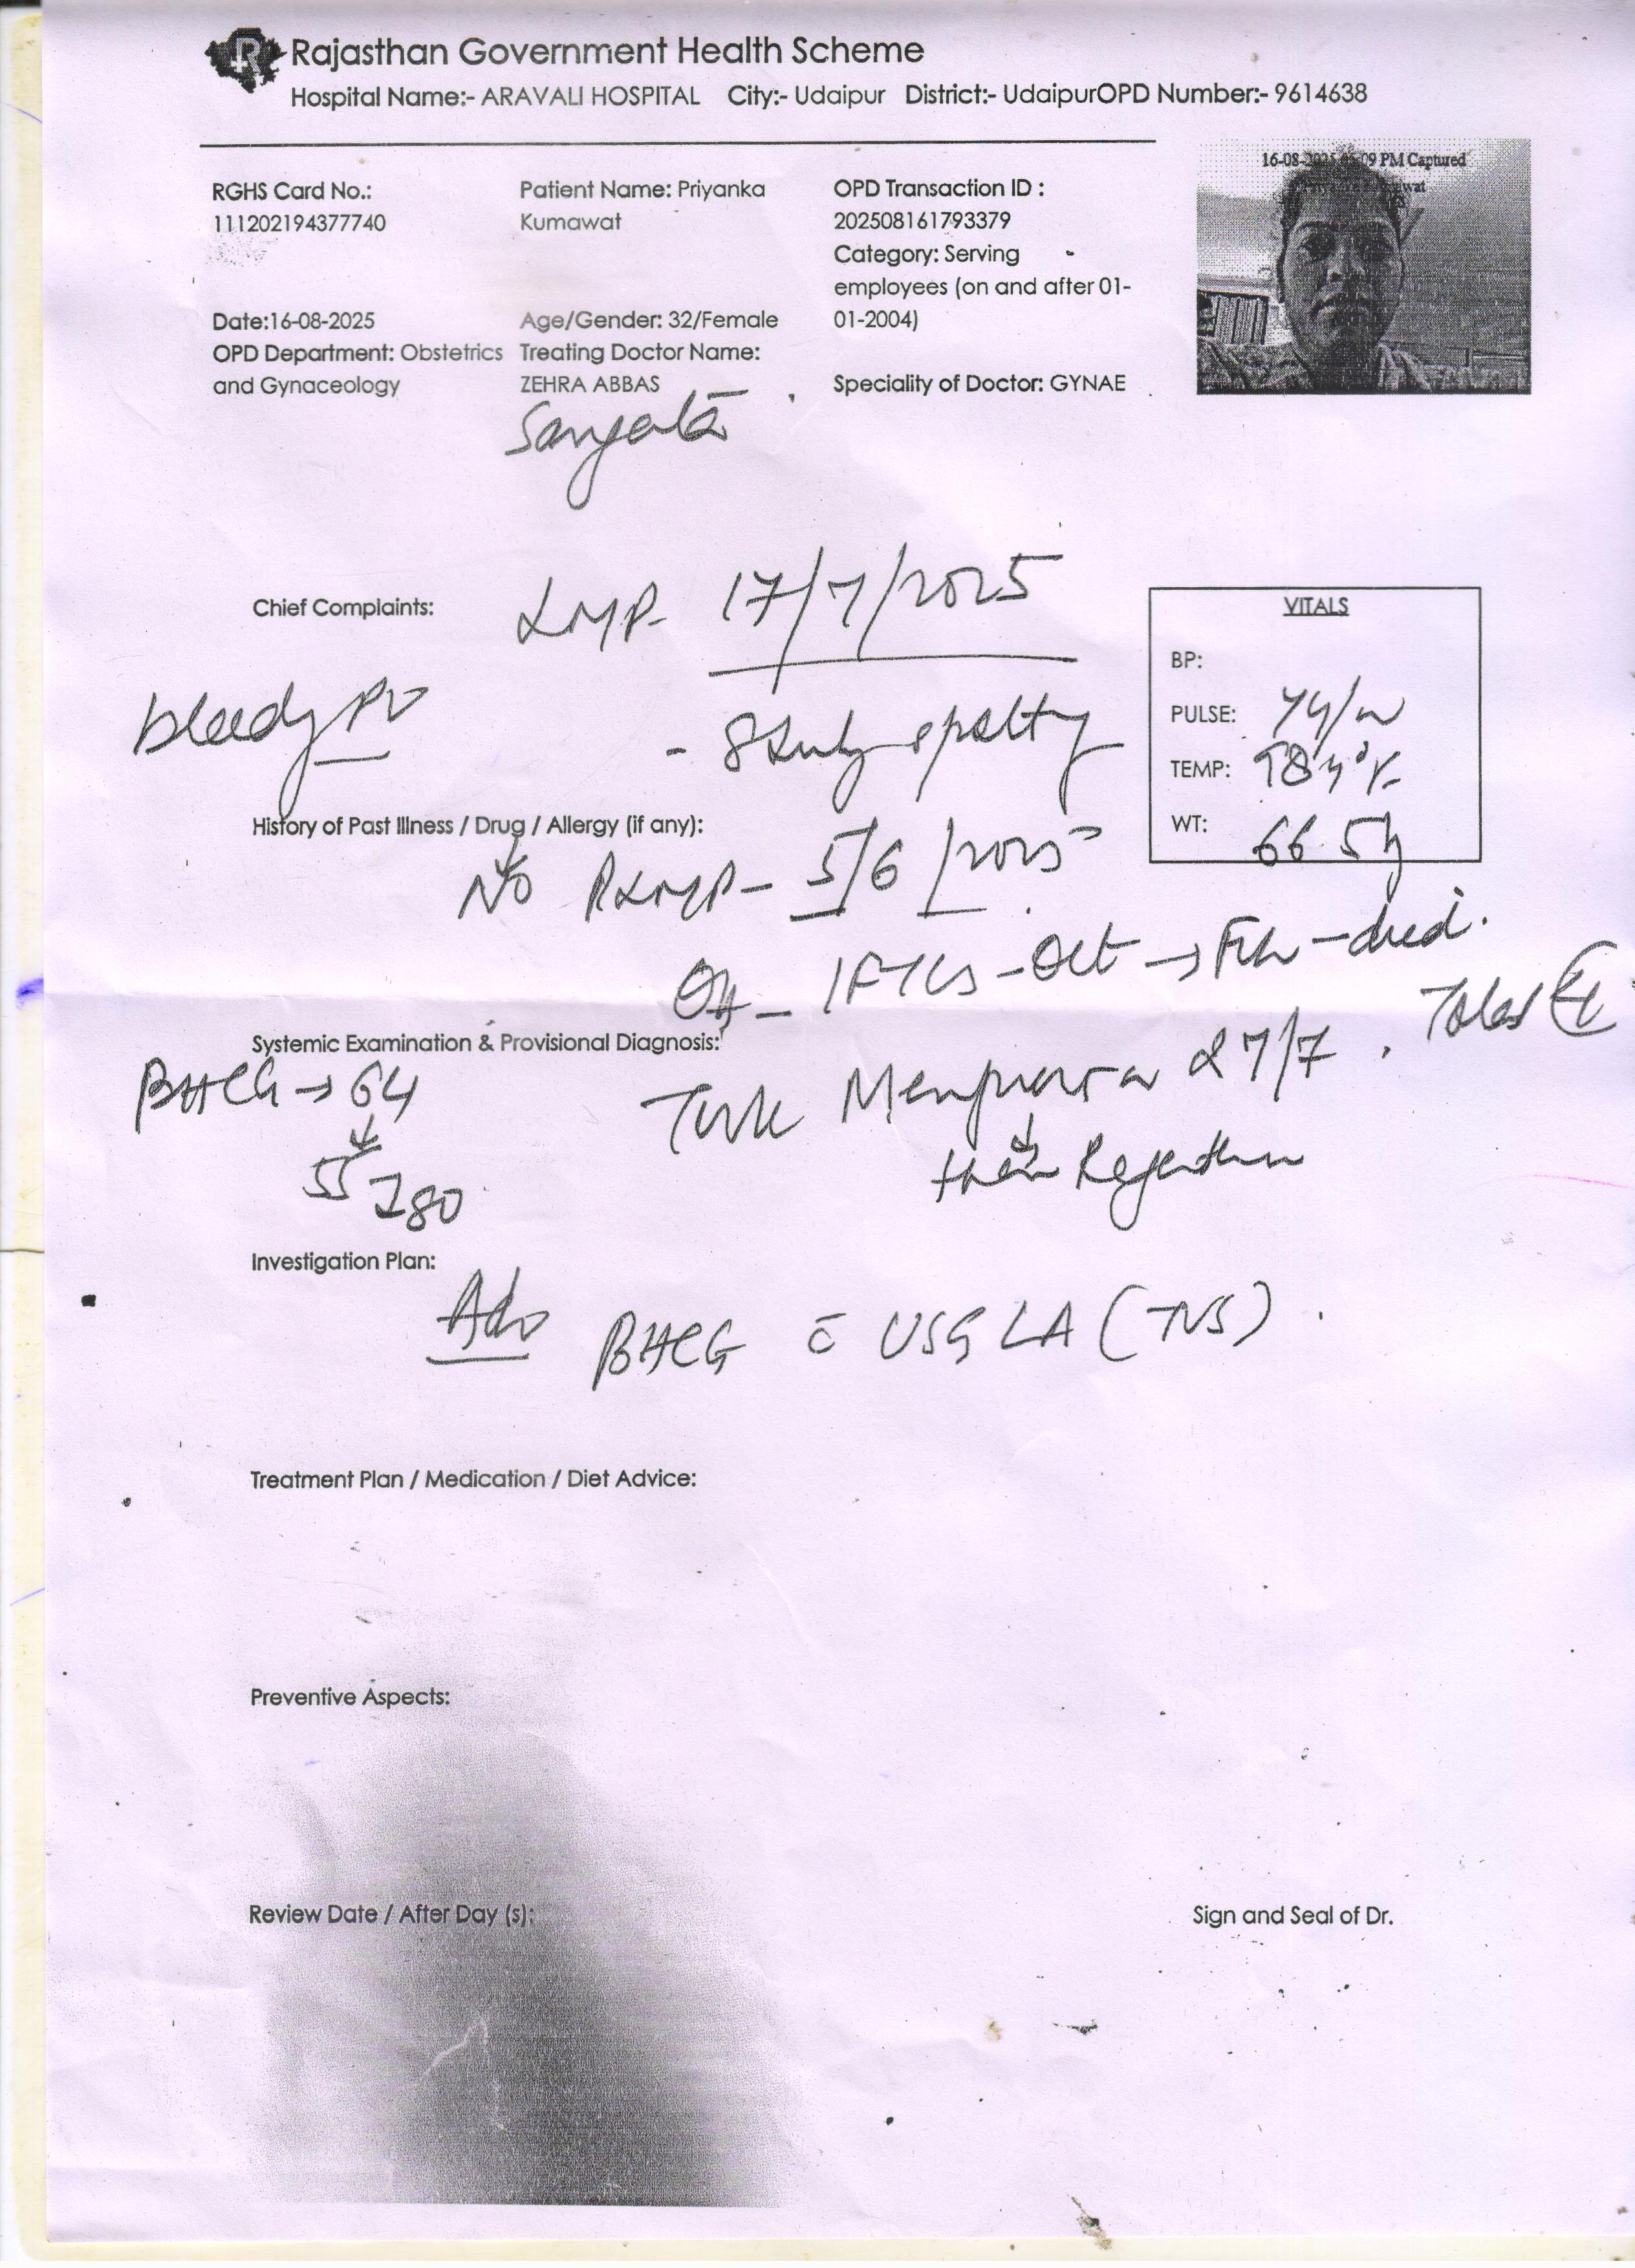 Rajasthan Government Health Scheme
Hospital Name:- ARAVALI HOSPITAL City:- Udaipur District:- UdaipurOPD Number:- 9614638
16-08-2025 09 PM Captured
RGHS Card No.: Patient Name: Priyanka OPD Transaction ID :
111202194377740 Kumawat 202508161793379
Category: Serving
employees (on and after 01-
Date:16-08-2025 Age/Gender: 32/Female 01-2004)
OPD Department: Obstetrics Treating Doctor Name:
and Gynaceology ZEHRA ABBAS Speciality of Doctor: GYNAE
Sangeeta
Chief Complaints: LMP- 17/7/2025
VITALS
BP:
bleeding PV
PULSE: 74/m
TEMP: 98.4°F
History of Past Illness / Drug / Allergy (if any):
WT: 66.5
No PLMP- 5/6/2025
OH -
Systemic Examination & Provisional Diagnosis:
BHCG → 64 27/7
55
280
Investigation Plan:
Adv BHCG c̄ USG LA (TVS).
Treatment Plan / Medication / Diet Advice:
Preventive Aspects:
Review Date / After Day (s): Sign and Seal of Dr.